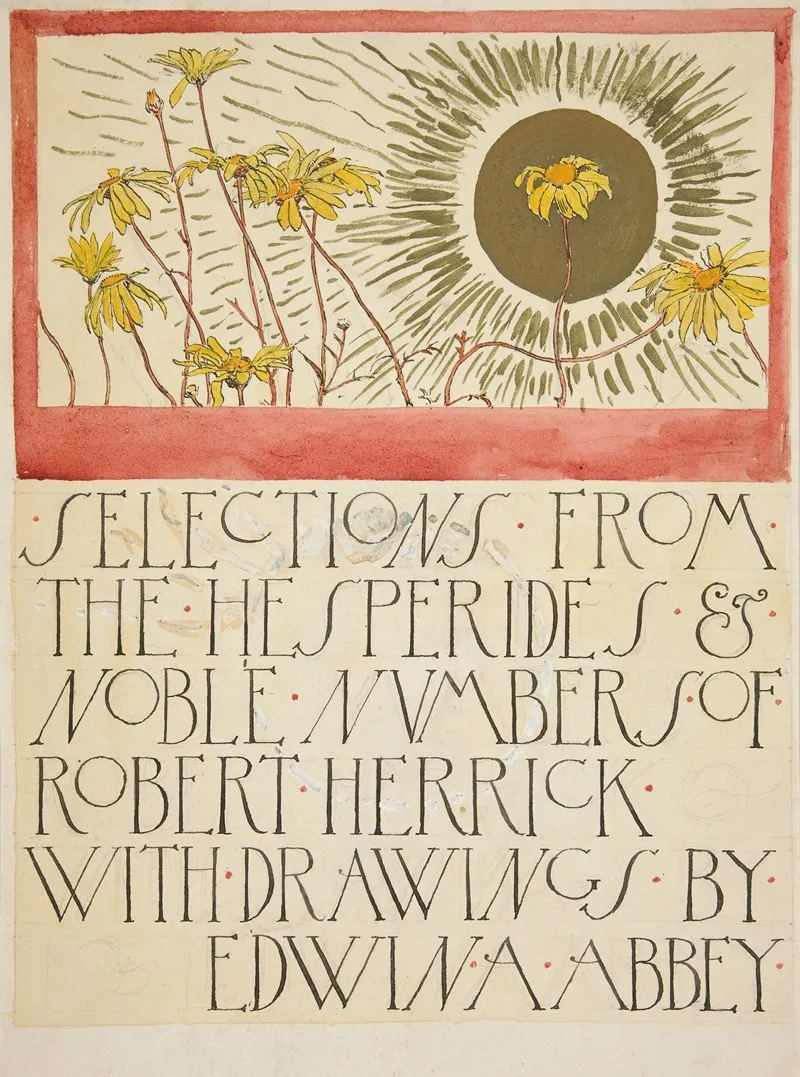 ·SELECTIONS·FROM·
THE·HESPERIDES·&·
NOBLE·NUMBERS·OF·
ROBERT·HERRICK·
WITH·DRAWINGS·BY·
EDWIN·A·ABBEY·